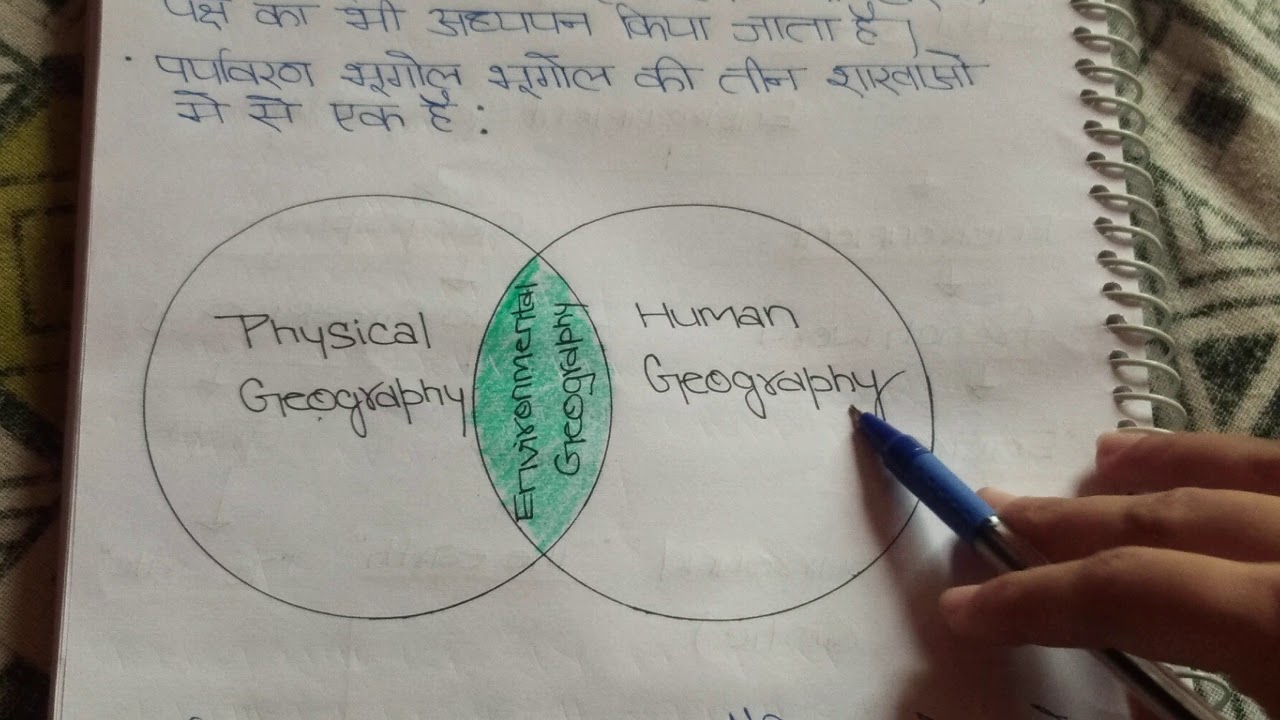 पक्ष का भी अध्ययन किया जाता है।
पर्यावरण भूगोल भूगोल की तीन शाखाओ
मे से एक है :
Physical
Geography
Environmental
Geography
Human
Geography